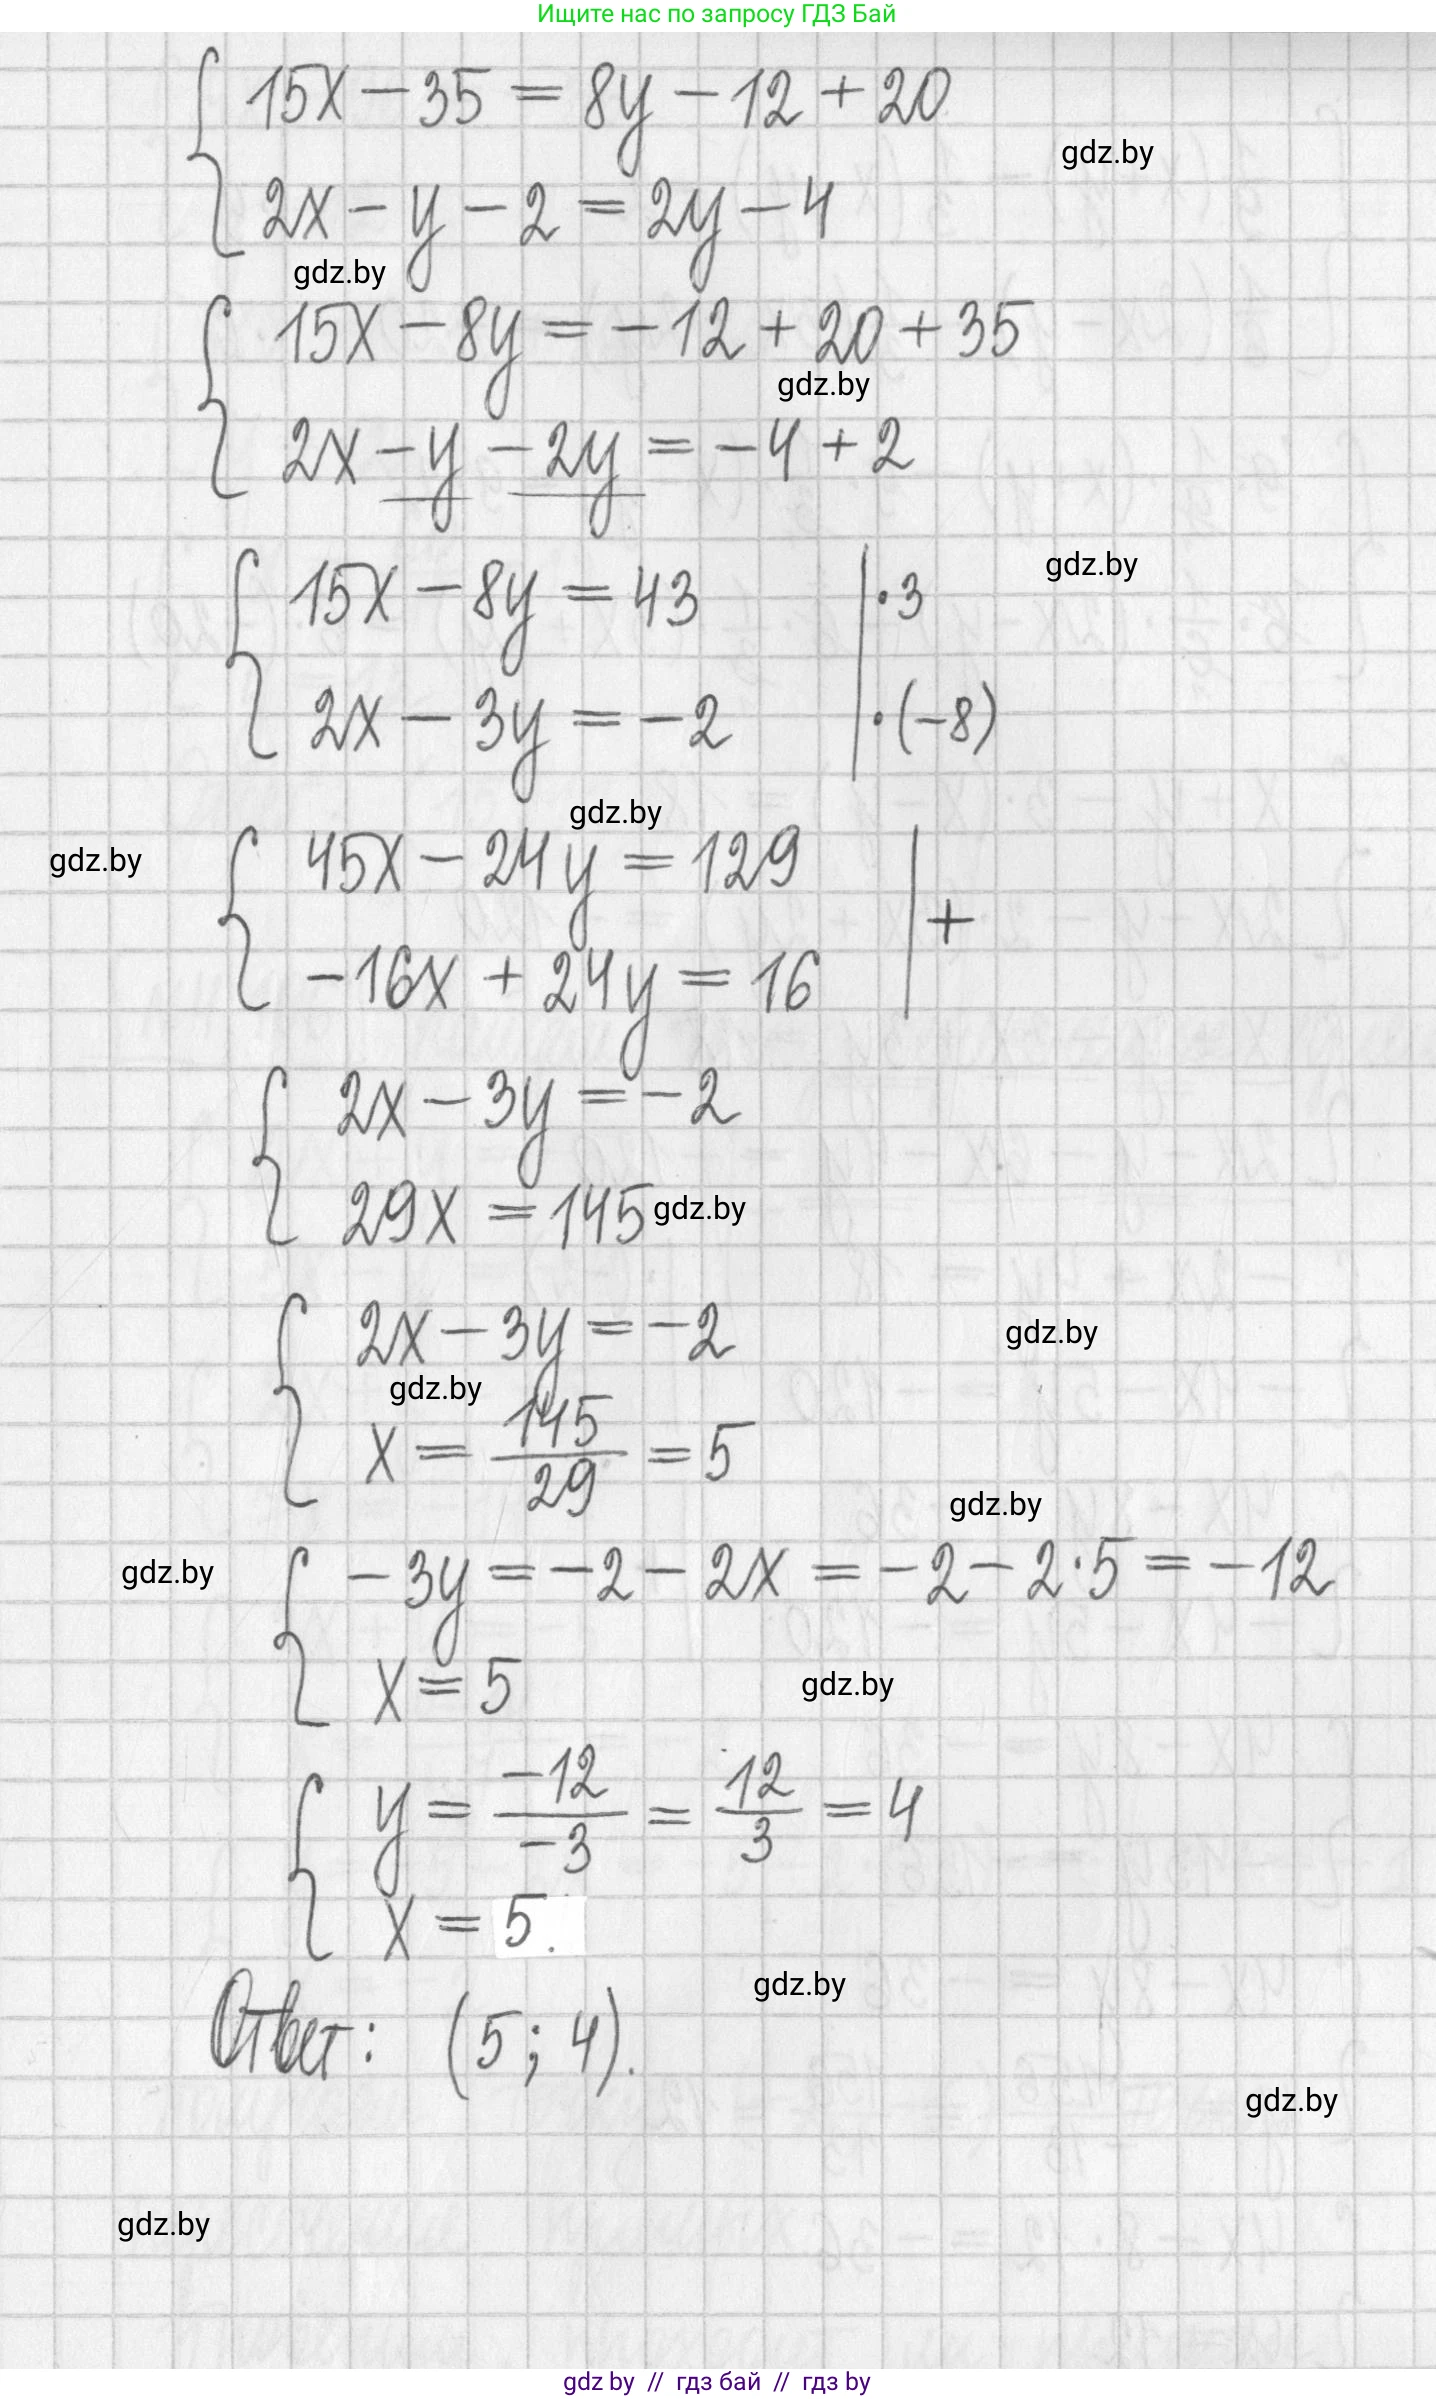 Ищите нас по запросу ГДЗ Бай
15x - 35 = 8y - 12 + 20
gdz.by
2x - y - 2 = 2y - 4
gdz.by
15x - 8y = -12 + 20 + 35
gdz.by
2x - y - 2y = -4 + 2
gdz.by
15x - 8y = 43 | ·3
2x - 3y = -2 | ·(-8)
gdz.by
gdz.by
45x - 24y = 129 | +
-16x + 24y = 16
2x - 3y = -2
29x = 145
gdz.by
2x - 3y = -2
gdz.by
gdz.by
x = 145/29 = 5
gdz.by
gdz.by
-3y = -2 - 2x = -2 - 2·5 = -12
x = 5
gdz.by
y = -12/-3 = 12/3 = 4
x = 5.
gdz.by
Ответ: (5; 4).
gdz.by
gdz.by
gdz.by // гдз бай // гдз by